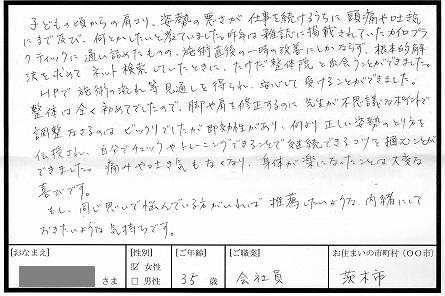 子どもの頃からの肩コリ、姿勢の悪さが仕事を続けるうちに頭痛や吐気
にまで及び、何とかしたいと考えていました。昨年は雑誌に掲載されていたカイロプラ
クティックに通い詰めたものの、施術直後の一時の改善にしかならず、根本的解
決を求めてネット検索していたときに、たけだ整体院と出会うことができました。
HPで施術の流れ等見通しを得られ、安心して受けることができました。
整体は全く初めてでしたので、脚や肩を修正するのに先生が不思議なポイントで
調整なさるのはビックリでしたが即効性があり、何より正しい姿勢のとり方を
伝授され、自分でチェックやトレーニングできることで継続できるコツを掴むことが
できました。痛みや吐き気もなくなり、身体が楽になったことは大変な
喜びです。
もし、同じ思いで悩んでいる方がいれば推薦したいような、内緒にして
おきたいような気持ちです。
【おなまえ】 【性別】 【ご年齢】 【ご職業】 お住まいの市町村(〇〇市)
さま ☑ 女性 □ 男性 35 歳 会社員 茨木市